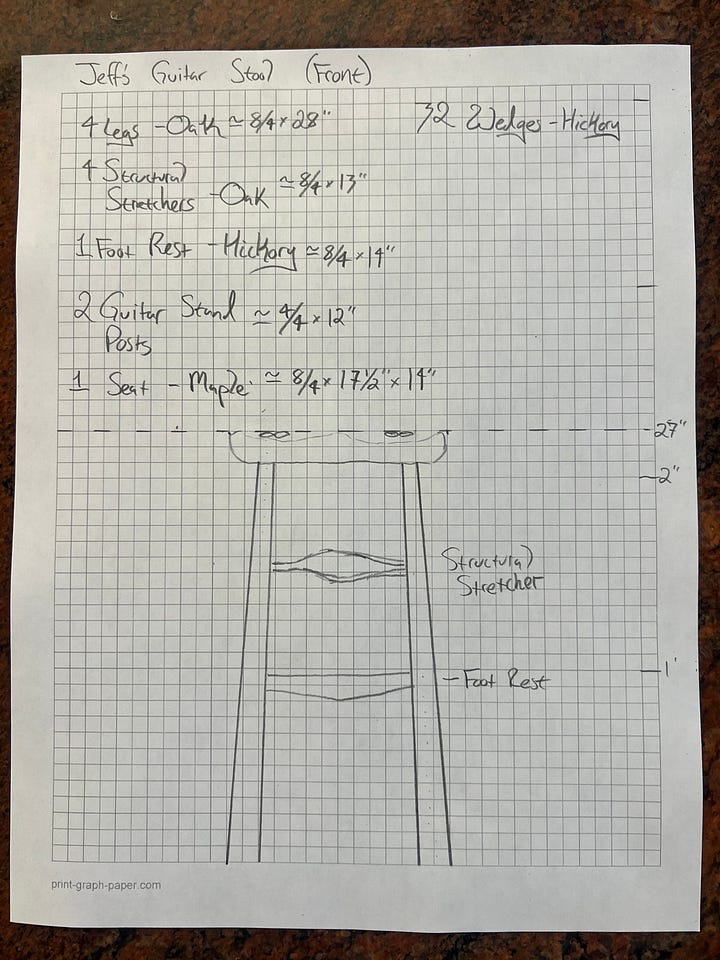 Jeff's Guitar Stool (Front)
4 Legs - Oak ≃ 8/4 × 28"
32 Wedges - Hickory
4 Structural
Stretchers - Oak ≃ 8/4 × 13"
1 Foot Rest - Hickory ≃ 8/4 × 14"
2 Guitar Stand ≃ 4/4 × 12"
Posts
1 Seat - Maple ≃ 8/4 × 17½" × 14"
27"
2"
Structural
Stretcher
1'
- Foot Rest
print-graph-paper.com